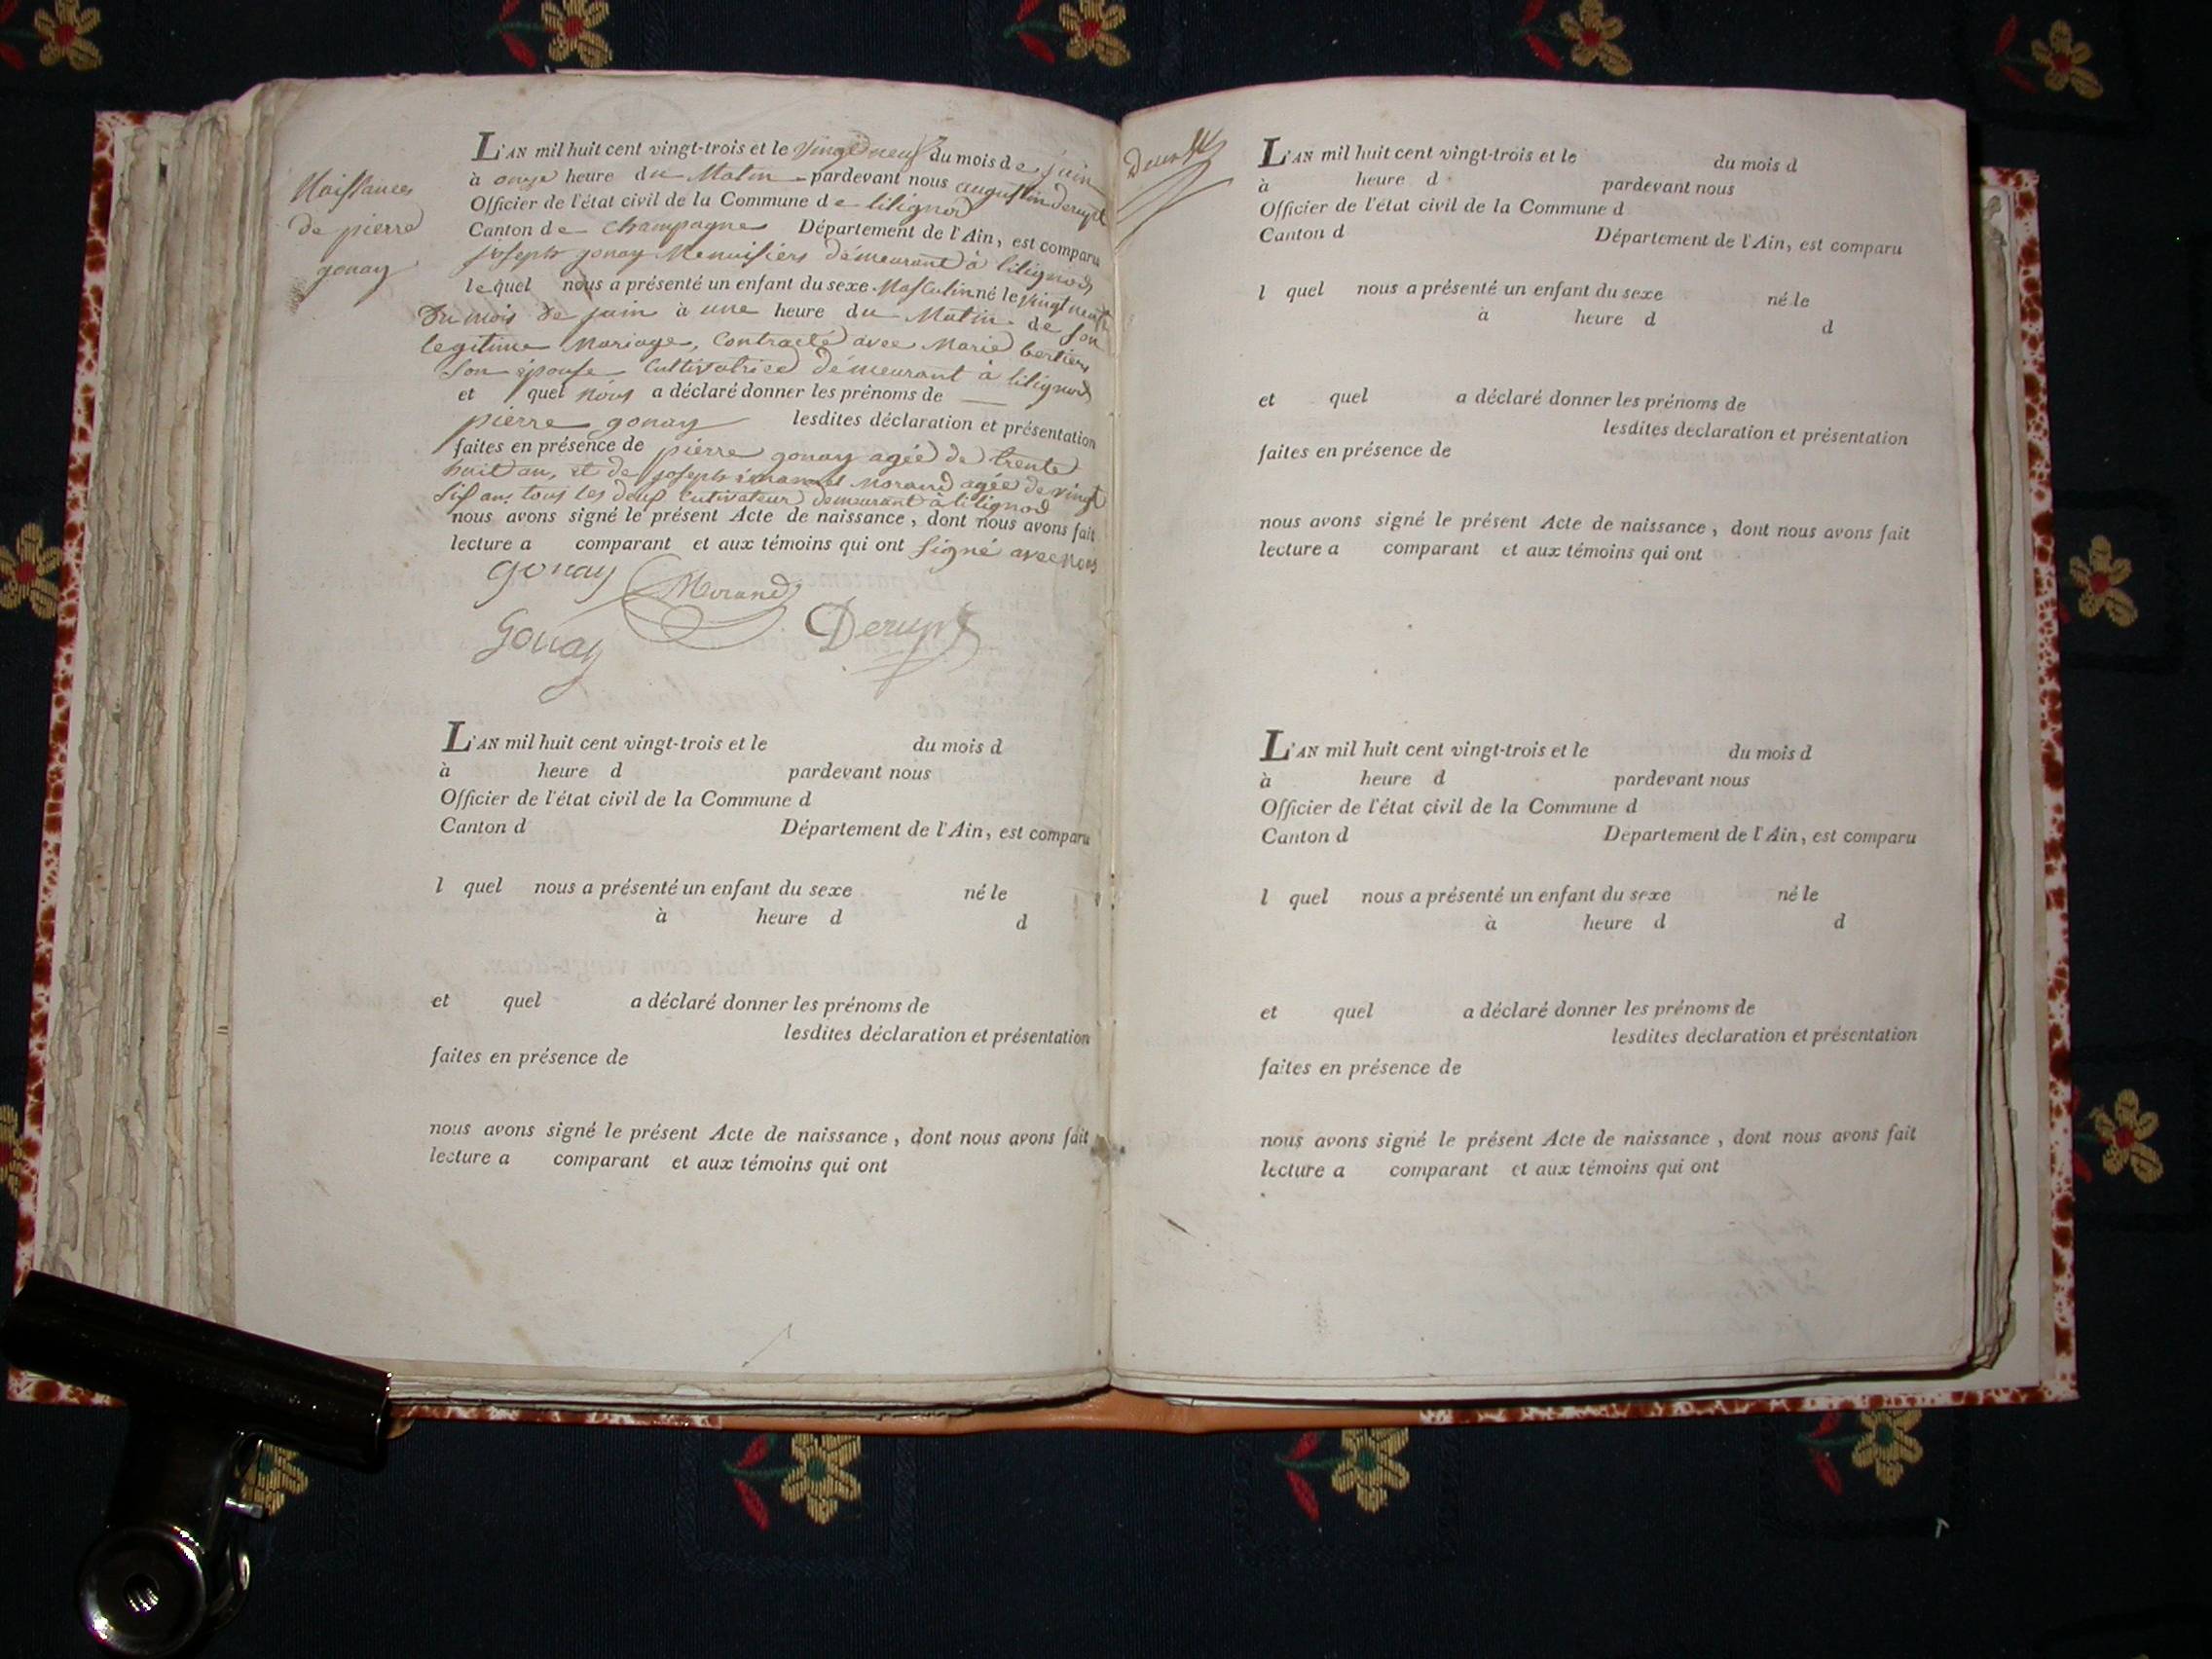 Naissances
de pierre
gonay
L'AN mil huit cent vingt-trois et le vingt neuf du mois de juin
à onze heure du Matin pardevant nous augustin derupt
Officier de l'état civil de la Commune de lilignod
Canton de Champagne Département de l'Ain, est comparu
joseph gonay Menuisiers démeurant à lilignod
lequel nous a présenté un enfant du sexe Masculin né le vingt neuf
du mois de juin à une heure du Matin de son
legitime Mariage, Contracté avec Marie bertier
Son épouse Cultivatrice démeurant à lilignod
et quel nous a déclaré donner les prénoms de
pierre gonay lesdites déclaration et présentation
faites en présence de pierre gonay agée de trente
huit an, et de joseph Morand agée de vingt
six an, tous les deux Cutivateur demeurant à lilignod
nous avons signé le présent Acte de naissance, dont nous avons fait
lecture a comparant et aux témoins qui ont signé avec nous
gonay Morand
Gonay Derupt
L'AN mil huit cent vingt-trois et le du mois d
à heure d pardevant nous
Officier de l'état civil de la Commune d
Canton d Département de l'Ain, est comparu
l quel nous a présenté un enfant du sexe né le
à heure d d
et quel a déclaré donner les prénoms de
lesdites déclaration et présentation
faites en présence de
nous avons signé le présent Acte de naissance, dont nous avons fait
lecture a comparant et aux témoins qui ont
L'AN mil huit cent vingt-trois et le du mois d
à heure d pardevant nous
Officier de l'état civil de la Commune d
Canton d Département de l'Ain, est comparu
l quel nous a présenté un enfant du sexe né le
à heure d d
et quel a déclaré donner les prénoms de
lesdites declaration et présentation
faites en présence de
nous avons signé le présent Acte de naissance, dont nous avons fait
lecture a comparant et aux témoins qui ont
L'AN mil huit cent vingt-trois et le du mois d
à heure d pardevant nous
Officier de l'état civil de la Commune d
Canton d Departement de l'Ain, est comparu
l quel nous a présenté un enfant du sexe né le
à heure d d
et quel a déclaré donner les prénoms de
lesdites declaration et présentation
faites en présence de
nous avons signé le présent Acte de naissance, dont nous avons fait
lecture a comparant et aux témoins qui ont